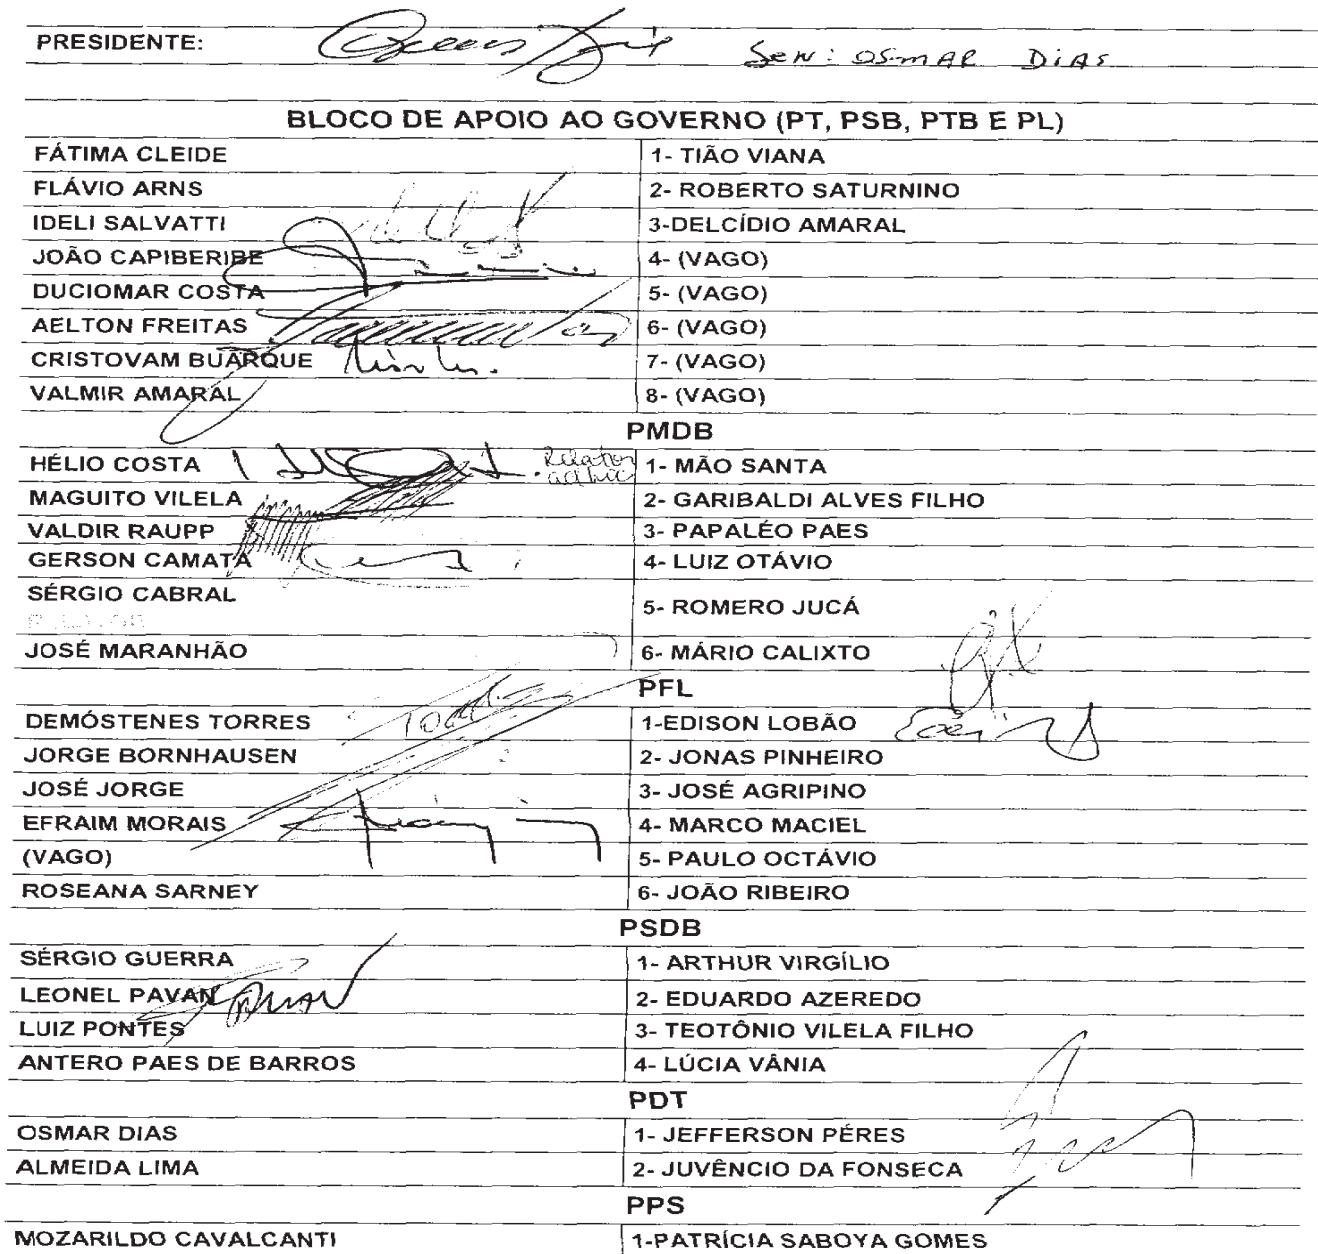 PRESIDENTE: SEN: OSMAR DIAS
BLOCO DE APOIO AO GOVERNO (PT, PSB, PTB E PL)
FÁTIMA CLEIDE 1- TIÃO VIANA
FLÁVIO ARNS 2- ROBERTO SATURNINO
IDELI SALVATTI 3-DELCÍDIO AMARAL
JOÃO CAPIBERIBE 4- (VAGO)
DUCIOMAR COSTA 5- (VAGO)
AELTON FREITAS 6- (VAGO)
CRISTOVAM BUARQUE 7- (VAGO)
VALMIR AMARAL 8- (VAGO)
PMDB
HÉLIO COSTA Relator ad hoc 1- MÃO SANTA
MAGUITO VILELA 2- GARIBALDI ALVES FILHO
VALDIR RAUPP 3- PAPALÉO PAES
GERSON CAMATA 4- LUIZ OTÁVIO
SÉRGIO CABRAL 5- ROMERO JUCÁ
JOSÉ MARANHÃO 6- MÁRIO CALIXTO
PFL
DEMÓSTENES TORRES 1-EDISON LOBÃO
JORGE BORNHAUSEN 2- JONAS PINHEIRO
JOSÉ JORGE 3- JOSÉ AGRIPINO
EFRAIM MORAIS 4- MARCO MACIEL
(VAGO) 5- PAULO OCTÁVIO
ROSEANA SARNEY 6- JOÃO RIBEIRO
PSDB
SÉRGIO GUERRA 1- ARTHUR VIRGÍLIO
LEONEL PAVAN 2- EDUARDO AZEREDO
LUIZ PONTES 3- TEOTÔNIO VILELA FILHO
ANTERO PAES DE BARROS 4- LÚCIA VÂNIA
PDT
OSMAR DIAS 1- JEFFERSON PÉRES
ALMEIDA LIMA 2- JUVÊNCIO DA FONSECA
PPS
MOZARILDO CAVALCANTI 1-PATRÍCIA SABOYA GOMES